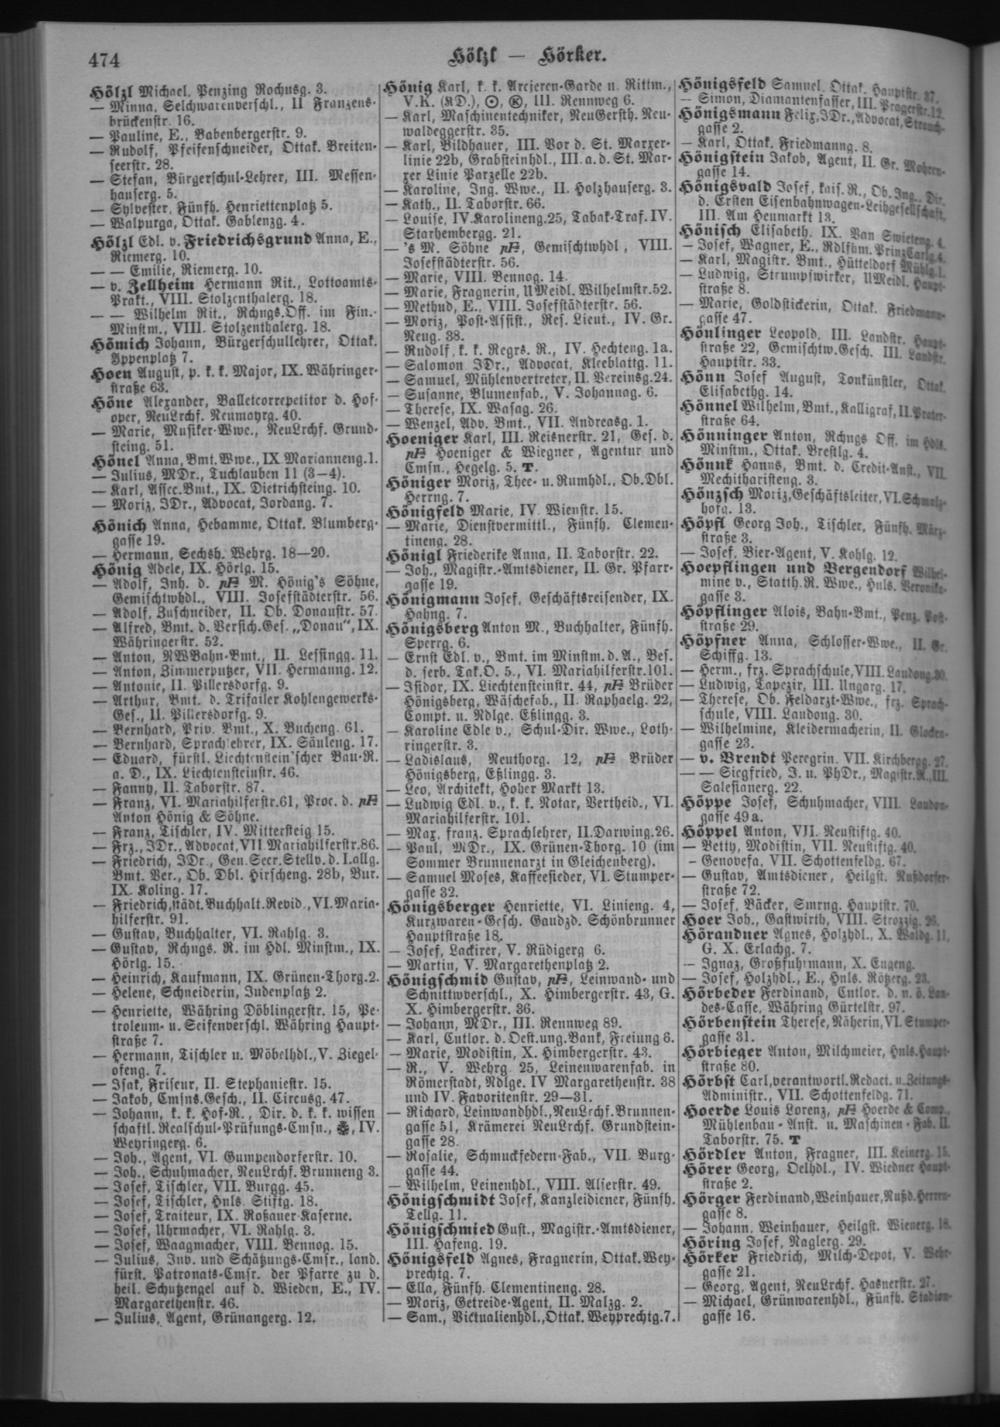 474
Hölzl — Hörker.
Hölzl Michael, Penzing Rochusg. 3.
— Minna, Selchwarenverschl., II Franzens-
brückenstr. 16.
— Pauline, E., Babenbergerstr. 9.
— Rudolf, Pfeifenschneider, Ottak. Breiten-
seerstr. 28.
— Stefan, Bürgerschul-Lehrer, III. Messen-
hauserg. 5.
— Sylvester, Fünfh. Henriettenplatz 5.
— Walpurga, Ottak. Gablenzg. 4.
Hölzl Edl. v. Friedrichsgrund Anna, E.,
Riemerg. 10.
— — Emilie, Riemerg. 10.
— v. Zellheim Hermann Rit., Lottoamts-
Prakt., VIII. Stolzenthalerg. 18.
— — Wilhelm Rit., Rchngs.Off. im Fin.-
Minstm., VIII. Stolzenthalerg. 18.
Hömich Johann, Bürgerschullehrer, Ottak.
Eppenplatz 7.
Hoen August, p. k. k. Major, IX. Währinger-
straße 63.
Höne Alexander, Balletcorrepetitor d. Hof-
oper, NeuLrchf. Neumayrg. 40.
— Marie, Musiker-Wwe., NeuLrchf. Grund-
steing. 51.
Hönel Anna, Bmt.Wwe., IX Marianneng.1.
— Julius, MDr., Tuchlauben 11 (3—4).
— Karl, Assec.Bmt., IX. Dietrichsteing. 10.
— Moriz, JDr., Advocat, Jordang. 7.
Hönich Anna, Hebamme, Ottak. Blumberg-
gasse 19.
— Hermann, Sechsh. Wehrg. 18—20.
Hönig Adele, IX. Hörlg. 15.
— Adolf, Inh. d. M. Hönig's Söhne,
Gemischtwhdl., VIII. Josefstädterstr. 56.
— Adolf, Zuschneider, II. Ob. Donaustr. 57.
— Alfred, Bmt. d. Versich.Ges. „Donau", IX.
Währingerstr. 52.
— Anton, NWBahn-Bmt., II. Lessingg. 11.
— Anton, Zimmerputzer, VII. Hermanng. 12.
— Antonie, II. Pillersdorfg. 9.
— Arthur, Bmt. d. Trifailer Kohlengewerks-
Ges., II. Pillersdorfg. 9.
— Bernhard, Priv. Bmt., X. Bucheng. 61.
— Bernhard, Sprachlehrer, IX. Säuleng. 17.
— Eduard, fürstl. Liechtenstein'scher Bau-R.
a. D., IX. Liechtensteinstr. 46.
— Fanny, II. Taborstr. 87.
— Franz, VI. Mariahilferstr.61, Proc. d.
Anton Hönig & Söhne.
— Franz, Tischler, IV. Mittersteig 15.
— Frz., JDr., Advocat, VII Mariahilferstr.86.
— Friedrich, JDr., Gen.Secr.Stellv. d. I.allg.
Bmt. Ver., Ob. Dbl. Hirscheng. 28b, Bur.
IX. Koling. 17.
— Friedrich, städt. Buchhalt.Revid., VI.Maria-
hilferstr. 91.
— Gustav, Buchhalter, VI. Rahlg. 3.
— Gustav, Rchngs. R. im Hdl. Minstm., IX.
Hörlg. 15.
— Heinrich, Kaufmann, IX. Grünen-Thorg.2.
— Helene, Schneiderin, Judenplatz 2.
— Henriette, Währing Döblingerstr. 15, Pe-
troleum- u. Seifenverschl. Währing Haupt-
straße 7.
— Hermann, Tischler u. Möbelhdl., V. Ziegel-
ofeng. 7.
— Isak, Friseur, II. Stephaniestr. 15.
— Jakob, Cmsns.Gesch., II. Circusg. 47.
— Johann, k. k. Hof-R., Dir. d. k. k. wissen
schaftl. Realschul-Prüfungs-Cmsn., IV.
Weyringerg. 6.
— Joh., Agent, VI. Gumpendorferstr. 10.
— Joh., Schuhmacher, NeuLrchf. Brunneng 3.
— Josef, Tischler, VII. Burgg. 45.
— Josef, Tischler, Hnls. Stiftg. 18.
— Josef, Traiteur, IX. Roßauer-Kaserne.
— Josef, Uhrmacher, VI. Rahlg. 3.
— Josef, Waagmacher, VIII. Bennog. 15.
— Julius, Inv. und Schätzungs-Cmsr., land.
fürst. Patronats-Cmsr. der Pfarre zu d.
heil. Schutzengel auf d. Wieden, E., IV.
Margarethenstr. 46.
— Julius, Agent, Grünangerg. 12.
Hönig Karl, k. k. Arcieren-Garde u. Rittm.,
V.K. (KD.), III. Rennweg 6.
— Karl, Maschinentechniker, NeuGersth. Neu-
waldeggerstr. 35.
— Karl, Bildhauer, III. Vor d. St. Marxer-
linie 22b, Grabsteinhdl., III. a. d. St. Mar-
xer Linie Parzelle 22b.
— Karoline, Ing. Wwe., II. Holzhauserg. 3.
— Kath., II. Taborstr. 66.
— Louise, IV.Karolineng.25, Tabak-Traf.IV.
Starhembergg. 21.
— 's M. Söhne, Gemischtwhdl., VIII.
Josefstädterstr. 56.
— Marie, VIII. Bennog. 14.
— Marie, Fragnerin, UMeidl. Wilhelmstr.52.
— Methud, E., VIII. Josefstädterstr. 56.
— Moriz, Post-Assist., Res. Lieut., IV. Gr.
Neug. 38.
— Rudolf, k. k. Regrs. R., IV. Hechteng. 1a.
— Salomon, JDr., Advocat, Kleeblattg. 11.
— Samuel, Mühlenvertreter, II. Vereinsg.24.
— Susanne, Blumenfab., V. Johannag. 6.
— Therese, IX. Wasag. 26.
— Wenzel, Adv. Bmt., VII. Andreasg. 1.
Hoeniger Karl, III. Reisnerstr. 21, Ges. d.
Hoeniger & Wiegner, Agentur und
Cmsn., Hegelg. 5. T.
Höniger Moriz, Thee- u. Rumhdl., Ob.Dbl.
Herrng. 7.
Hönigfeld Marie, IV. Wienstr. 15.
— Marie, Dienstvermittl., Fünfh. Clemen-
tineng. 28.
Hönigl Friederike Anna, II. Taborstr. 22.
— Joh., Magistr.-Amtsdiener, II. Gr. Pfarr-
gasse 19.
Hönigmann Josef, Geschäftsreisender, IX.
Hahng. 7.
Hönigsberg Anton M., Buchhalter, Fünfh.
Sperrg. 6.
— Ernst Edl. v., Bmt. im Minstm. d. A., Bes.
d. serb. Tak.O. 5., VI. Mariahilferstr.101.
— Isidor, IX. Liechtensteinstr. 44, Brüder
Hönigsberg, Wäschefab., II. Raphaelg. 22,
Compt. u. Ndlge. Eßlingg. 3.
— Karoline Edle v., Schul-Dir. Wwe., Loth-
ringerstr. 3.
— Ladislaus, Neuthorg. 12, Brüder
Hönigsberg, Eßlingg. 3.
— Leo, Architekt, Hoher Markt 13.
— Ludwig Edl. v., k. k. Notar, Vertheid., VI.
Mariahilferstr. 101.
— Max, franz. Sprachlehrer, II.Darwing.26.
— Paul, MDr., IX. Grünen-Thorg. 10 (im
Sommer Brunnenarzt in Gleichenberg).
— Samuel Moses, Kaffeesieder, VI. Stumper-
gasse 32.
Hönigsberger Henriette, VI. Linieng. 4,
Kurzwaren-Gesch. Gaudzd. Schönbrunner
Hauptstraße 18.
— Josef, Lackirer, V. Rüdigerg 6.
— Martin, V. Margarethenplatz 2.
Hönigschmid Gustav, Leinwand- und
Schnittwverschl., X. Himbergerstr. 43, G.
X. Himbergerstr. 36.
— Johann, MDr., III. Rennweg 89.
— Karl, Cutlor. d. Oest.ung.Bank, Freiung 6.
— Marie, Modistin, X. Himbergerstr. 43.
— R., V. Wehrg 25, Leinenwarenfab. in
Römerstadt, Ndlge. IV Margarethenstr. 38
und IV. Favoritenstr. 29—31.
— Richard, Leinwandhdl., NeuLrchf. Brunnen-
gasse 51, Krämerei NeuLrchf. Grundstein-
gasse 28.
— Rosalie, Schmuckfedern-Fab., VII. Burg-
gasse 44.
— Wilhelm, Leinenhdl., VIII. Alserstr. 49.
Hönigschmidt Josef, Kanzleidiener, Fünfh.
Tellg. 11.
Hönigschmied Gust., Magistr.-Amtsdiener,
III. Hafeng. 19.
Hönigsfeld Agnes, Fragnerin, Ottak. Wey-
prechtg. 7.
— Ella, Fünfh. Clementineng. 28.
— Moriz, Getreide-Agent, II. Malzg. 2.
— Sam., Victualienhdl., Ottak. Weyprechtg.7.
Hönigsfeld Samuel, Ottak. Hauptstr. 37.
— Simon, Diamantenfasser, III. Pragerstr.12.
Hönigsmann Felix, JDr., Advocat, Strauch-
gasse 2.
— Karl, Ottak. Friedmanng. 8.
Hönigstein Jakob, Agent, II. Gr. Mohren-
gasse 14.
Hönigsvald Josef, kais. R., Ob.Ing., Dir.
d. Ersten Eisenbahnwagen-Leihgesellschaft,
III. Am Heumarkt 13.
Hönisch Elisabeth, IX. Van Swieteng. 4.
— Josef, Wagner, E., Rdlfhm. PrinzCarlg.4.
— Karl, Magistr. Bmt., Hütteldorf Mühlg.1.
— Ludwig, Strumpfwirker, UMeidl. Haupt-
straße 8.
— Marie, Goldstickerin, Ottak. Friedmann-
gasse 47.
Hönlinger Leopold, III. Landstr. Haupt-
straße 22, Gemischtw.Gesch. III. Landstr.
Hauptstr. 33.
Hönn Josef August, Tonkünstler, Ottak.
Elisabethg. 14.
Hönnel Wilhelm, Bmt., Kalligraf, II.Prater-
straße 64.
Hönninger Anton, Rchngs Off. im Hdls.
Minstm., Ottak. Brestlg. 4.
Hönnk Hanns, Bmt. d. Credit-Anst., VII.
Mechitharisteng. 3.
Hönzsch Moriz, Geschäftsleiter, VI.Schmalz-
hofg. 13.
Höpfl Georg Joh., Tischler, Fünfh. März-
straße 3.
— Josef, Bier-Agent, V. Kohlg. 12.
Hoepflingen und Bergendorf Wilhel-
mine v., Statth.R. Wwe., Hnls. Veronika-
gasse 3.
Höpflinger Alois, Bahn-Bmt., Penz. Post-
straße 29.
Höpfner Anna, Schlosser-Wwe., II. Gr.
Schiffg. 13.
— Herm., frz. Sprachschule, VIII. Laudong.30.
— Ludwig, Tapezir, III. Ungarg. 17.
— Therese, Ob. Feldarzt-Wwe., frz. Sprach-
schule, VIII. Laudong. 30.
— Wilhelmine, Kleidermacherin, II. Glocken-
gasse 23.
— v. Brendt Peregrin, VII. Kirchbergg. 27.
— — Siegfried, J. u. PhDr., Magistr.R., III.
Salesianerg. 22.
Höppe Josef, Schuhmacher, VIII. Laudon-
gasse 49a.
Höppel Anton, VII. Neustiftg. 40.
— Betty, Modistin, VII. Neustiftg. 40.
— Genovefa, VII. Schottenfeldg. 67.
— Gustav, Amtsdiener, Heilgst. Nußdorfer-
straße 72.
— Josef, Bäcker, Smrng. Hauptstr. 70.
Hoer Joh., Gastwirth, VIII. Strozzig. 26.
Hörandner Agnes, Holzhdl., X. Waldg. 11,
G. X. Erlachg. 7.
— Ignaz, Großfuhrmann, X. Eugeng.
— Josef, Holzhdl., E., Hnls. Rötzerg. 23.
Hörbeder Ferdinand, Cutlor. d. n. ö. Lan-
des-Casse, Währing Gürtelstr. 97.
Hörbenstein Therese, Näherin, VI. Stumper-
gasse 31.
Hörbieger Anton, Milchmeier, Hnls. Haupt-
straße 80.
Hörbst Carl, verantwortl.Redact. u. Zeitungs-
Administr., VII. Schottenfeldg. 71.
Hoerde Louis Lorenz, Hoerde & Comp.,
Mühlenbau-Anst. u. Maschinen-Fab. II.
Taborstr. 75. T
Hördler Anton, Fragner, III. Keinerg. 15.
Hörer Georg, Oelhdl., IV. Wiedner Haupt-
straße 2.
Hörger Ferdinand, Weinhauer, Nußd. Herren-
gasse 8.
— Johann, Weinhauer, Heilgst. Wienerg. 18.
Höring Josef, Naglerg. 29.
Hörker Friedrich, Milch-Depot, V. Wehr-
gasse 21.
— Georg, Agent, NeuLrchf. Hasnerstr. 27.
— Michael, Grünwarenhdl., Fünfh. Stadion-
gasse 16.